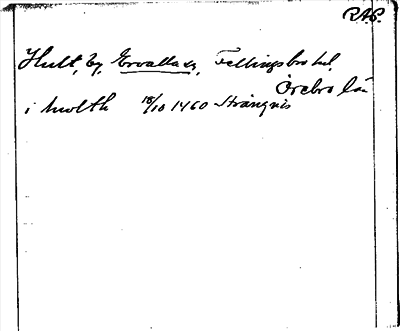 RAP.
Hult, by, Ervalla sn, Fellingsbro hd,
Örebro län
i hwlth 18/10 1460 Strängnäs